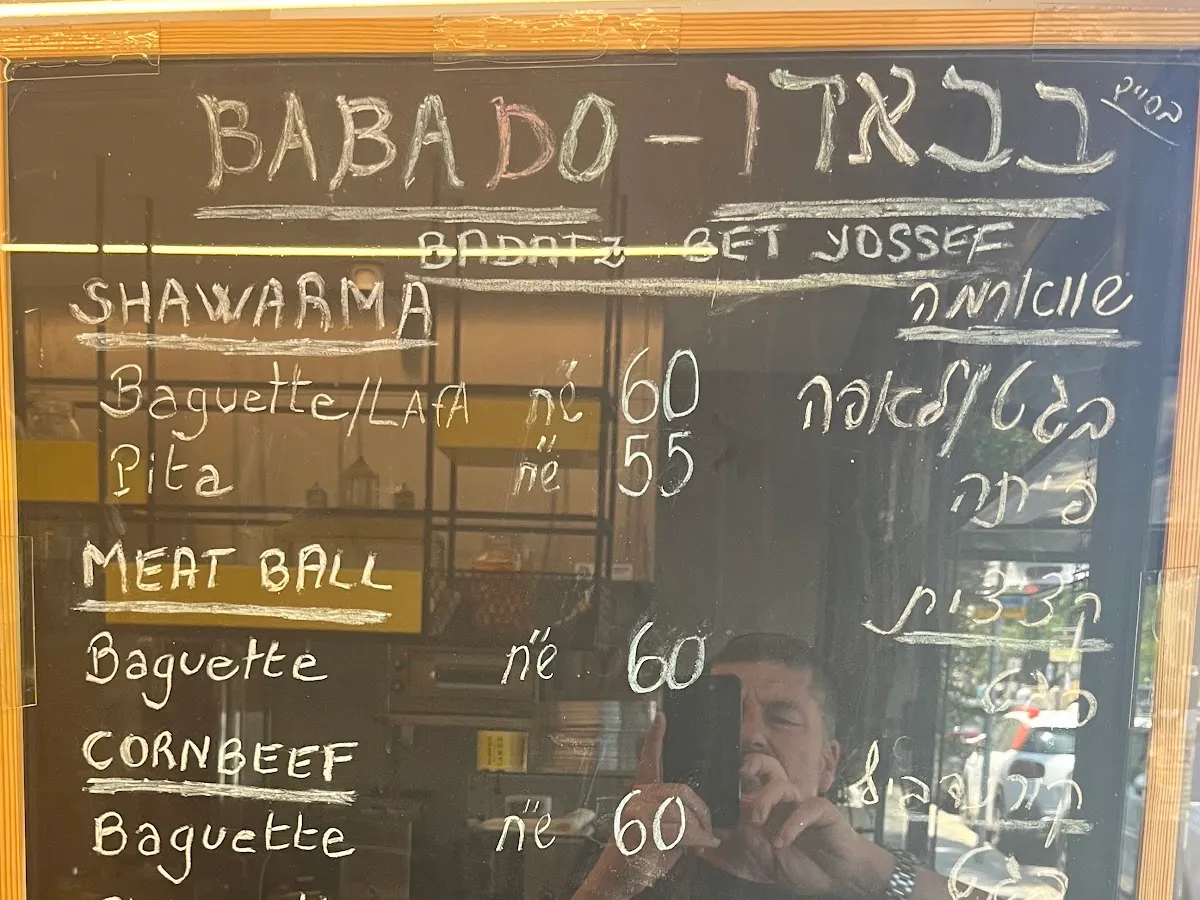 בס״ד
BABADO - בבאדו
BADATZ BET YOSSEF
SHAWARMA שווארמה
Baguette/LAfA ש״ח 60 בגט/לאפה
Pita ש״ח 55 פיתה
MEAT BALL קציצית
Baguette ש״ח 60 בגט
CORNBEEF קורנדביף
Baguette ש״ח 60 בגט